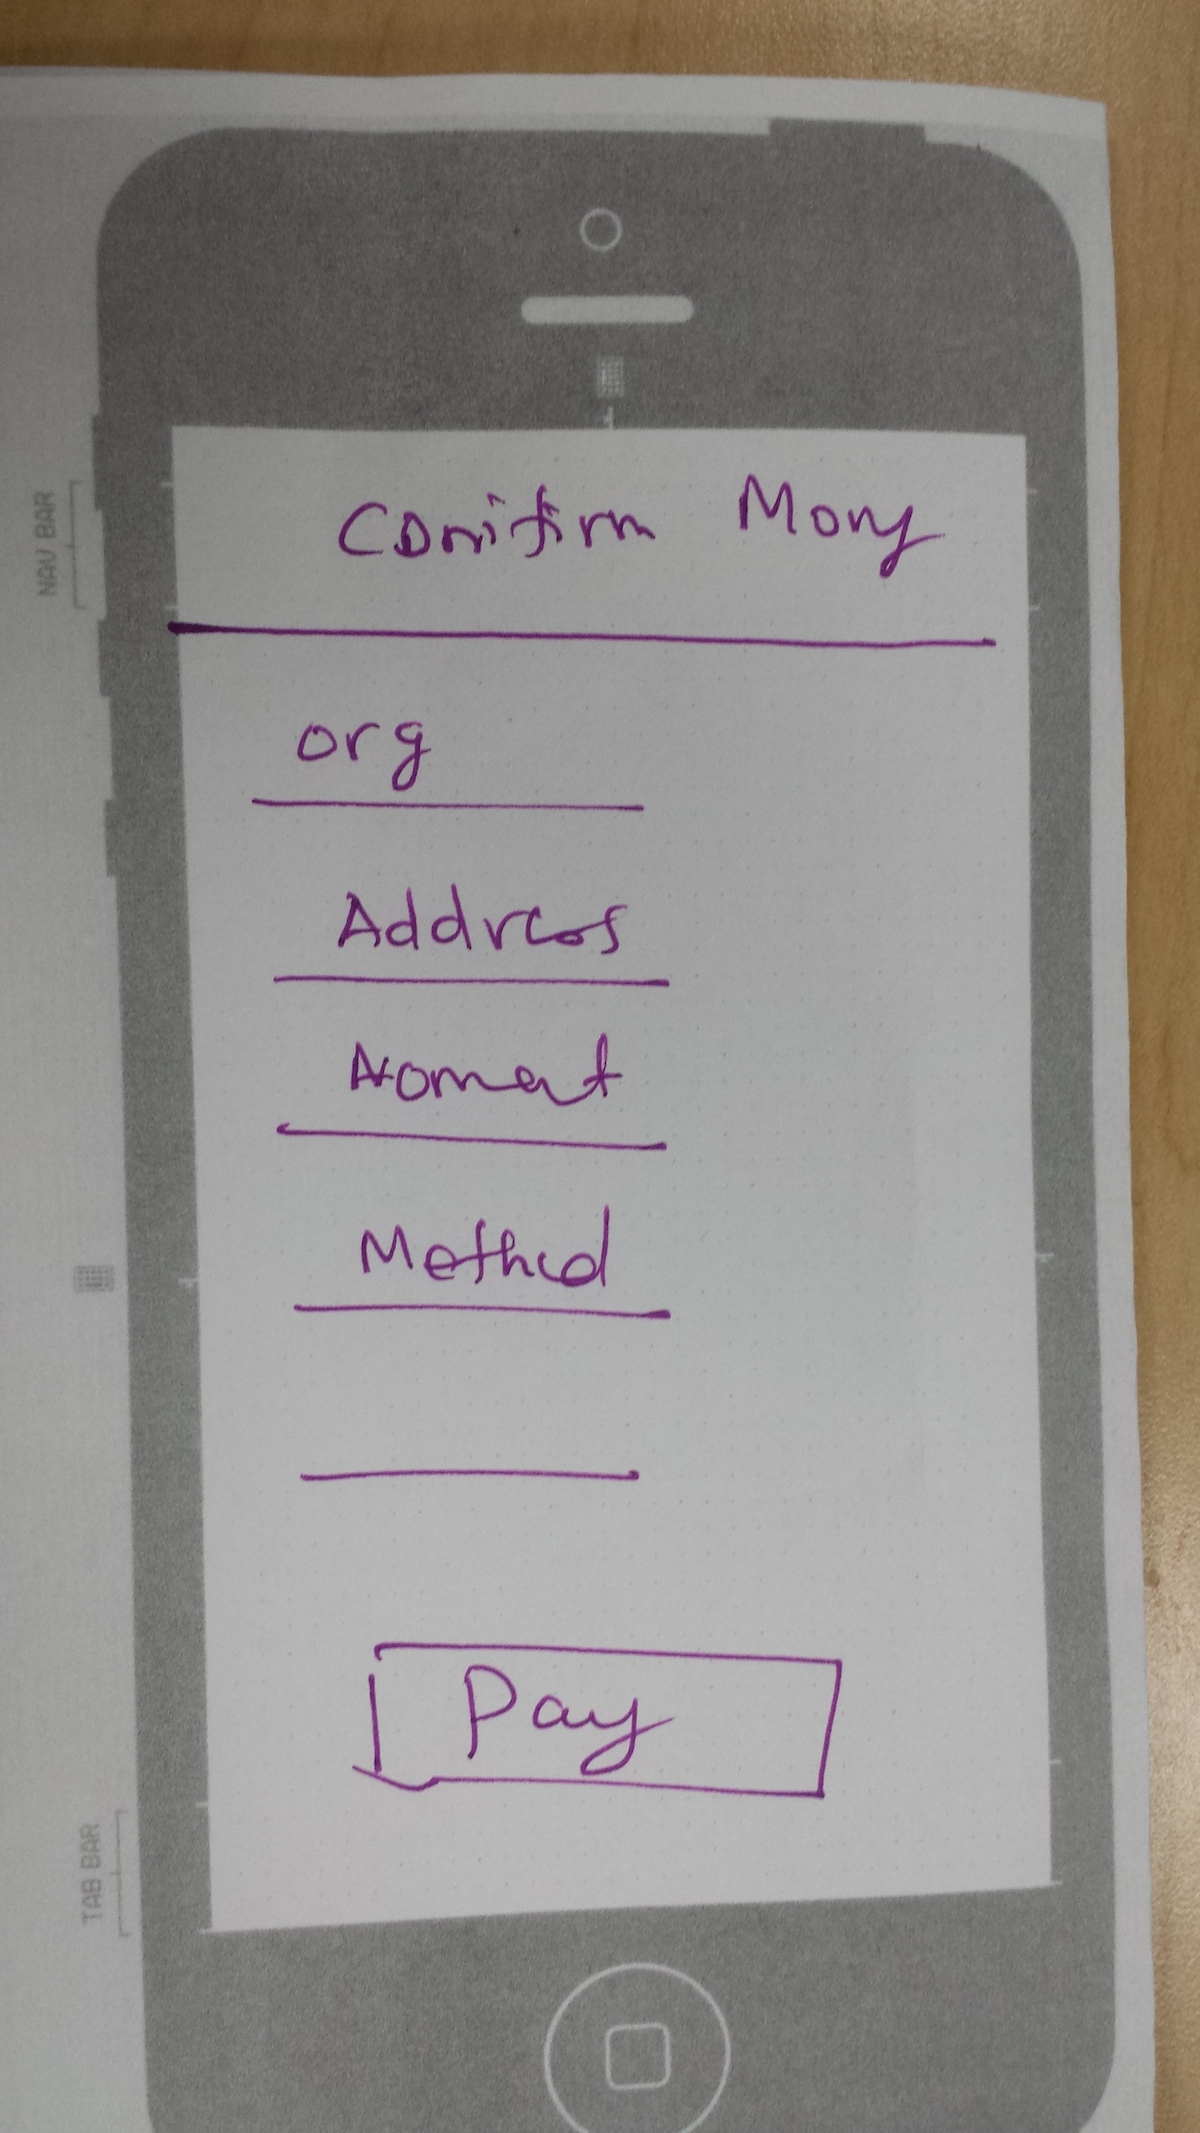 NAV BAR
Conifirm Mony
org
Address
Method
Pay
TAB BAR